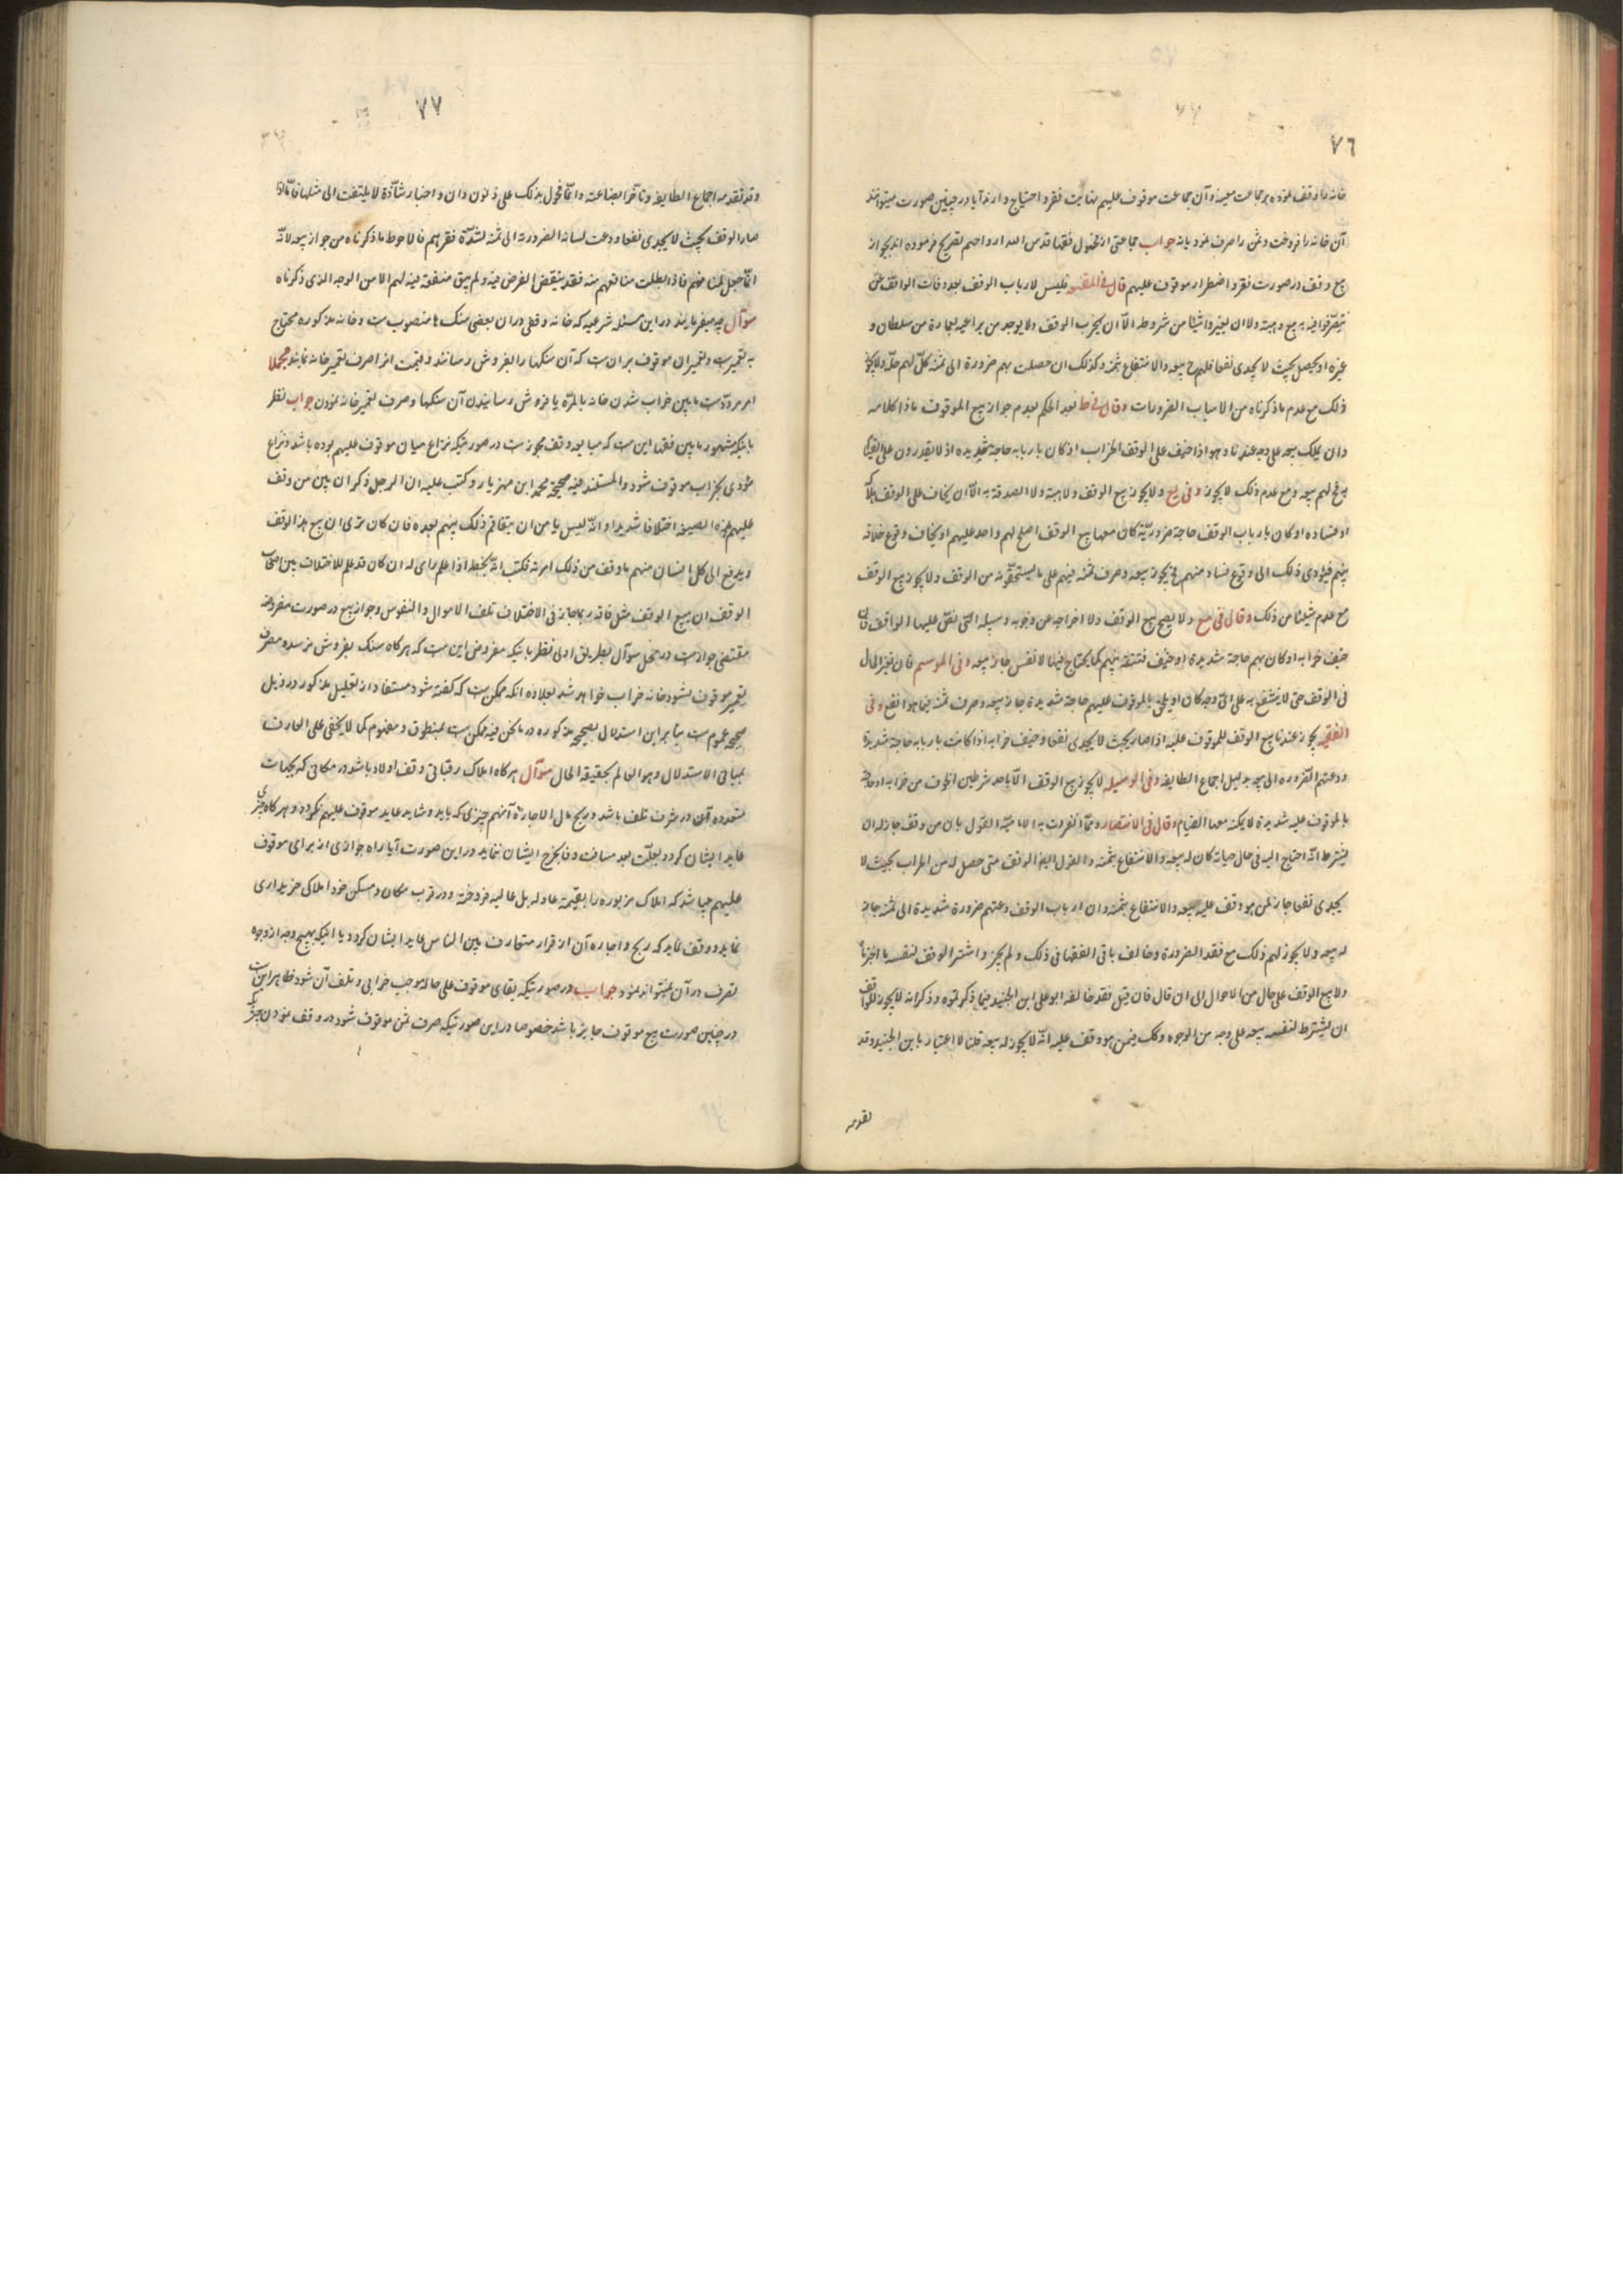 ٧٦
خانه را وقف نموده بر جماعت معینه و آن جماعت موقوف علیهم نهایت فقر و احتیاج دارند آیا در چنین صورت میتوانند
آن خانه را فروخت و ثمن را صرف نمود یا نه جواب جماعتی از فحول فقها قدس الله ارواحهم تصریح فرموده اند بجواز
بیع وقف در صورت فقر و اضطرار موقوف علیهم قال فی المقنعه و لیس لارباب الوقف بعد وفات الواقف ان
یتصرّفوا فیه ببیع و هبة ولا ان یغیّروا شیئا من شروطه الّا ان یخرب الوقف ولا یوجد من یراعیه بعمارة من سلطان و
غیره او یحصل بحیث لا یجدی نفعا فلهم ح بیعه والانتفاع بثمنه وکذلک ان حصلت بهم ضرورة الی ثمنه کلّ لهم حلّه ولا یجوز
ذلک مع عدم ما ذکرناه من الاسباب الضرورات وقال فی ط بعد الحکم بعدم جواز بیع الموقوف ما ذا کلامه
وان یملک بیعه علی وجه عندنا وهو اذا خیف علی الوقف الخراب او کان باربابه حاجة شدیده او لا یقدرون علی القیام
به فح لهم بیعه ومع عدم ذلک لا یجوز وفی یع ولا یجوز بیع الوقف ولا هبته ولا الصدقة به الّا ان یخاف علی الوقف هلاکه
او فساده او کان بارباب الوقف حاجة ضروریّة کان معها بیع الوقف اصلح لهم واحد علیهم او یخاف وقوع خلاف
بینهم فیؤدی ذلک الی وقوع فساد منهم فح یجوز بیعه وصرف ثمنه فیهم علی ما یستحقّونه من الوقف ولا یجوز بیع الوقف
مع عدم شیئا من ذلک وقال فی مع ولا یصح بیع الوقف ولا اخراجه عن وجوبه وسبیله التی نصّ علیها الواقف فان
خیف خرابه او کان بهم حاجة شدیدة او خیف فتنة بینهم کما یحتاج فیها لا نفس جاز بیعه وفی المراسم فان تغیّر الحال
فی الوقف حتی لا ینتفع به علی ایّ وجه کان او یلحق بالموقوف علیهم حاجة شدیدة جاز بیعه وصرف ثمنه فیما هو انفع وفی
الفقیه یجوز عندنا بیع الوقف للموقوف علیه اذا صار بحیث لا یجدی نفعا وخیف خرابه او کانت باربابه حاجة شدیدة
ودعتهم الضروره الی بیعه بدلیل اجماع الطایفه وفی الوسیله لا یجوز بیع الوقف الّا باحد شرطین الخوف من خرابه او حاجة
بالموقوف علیه شدیدة لا یمکنه معها القیام وقال فی الانتصار وممّا انفردت به الامامیّة القول بان من وقف جاز له ان
یشترط انّه احتاج الیه فی حال حیاته کان له بیعه والانتفاع بثمنه والقول ایضا الوقف متی حصل له من الخراب بحیث لا
یجدی نفعا جاز لمن هو وقف علیه بیعه والانتفاع بثمنه وان ارباب الوقف دعتهم ضرورة شدیدة الی ثمنه جاز
له بیعه ولا یجوز لهم ذلک مع فقد الضرورة وخالف باقی الفقها فی ذلک ولم یجیز واشتر الوقف لنفسه یا اخبرنا
ولا بیع الوقف علی حال من الاحوال الی ان قال فان قیل فقد خالفه ابو علی ابن الجنید فیما ذکرتموه وذکر انه لا یجوز للواقف
ان یشترط لنفسه بیعه علی وجه من الوجوه وکک فیمن هو وقف علیه انّه لا یجوز له بیعه قلنا لا اعتبار بابن الجنید وقد
تقدمه
٧٧
وقد تقدمه اجماع الطایفه وتأخر ایضاعنه وانّما عوّل بذلک علی ظنون وان واخبار شاذّة لا یلتفت الی مثلها فامّا اذا
صار الوقف بحیث لا یجدی نفعا ودعت لسانه الضرورة الی ثمنه لشدّة فقرهم فالاحوط ما ذکرناه من جواز بیعه لانّه
انّما جعل لمنافعهم فاذا بطلت منافعهم منه فقد ینتقض الغرض فیه ولم یبق منفعة فیه لهم الا من الوجه الذی ذکرناه
سوآل چه میفرمایند در این مسئله شرعیه که خانه وقفی در ان بعضی سنک ها منصوبست و خانه مذکوره محتاج
به تعمیرست وتعمیر ان موقوف بر ان ست که آن سنکها را بفروش رسانند و قیمت انرا صرف تعمیر خانه نمایند مجملا
امر مردّدست ما بین خراب شدن خانه بالمرّه یا فروش رسانیدن آن سنکها و صرف تعمیر خانه نمودن جواب نظر
باینکه مشهور ما بین فقها این ست که مبایعه وقف مجوزست در صورتیکه نزاع میان موقوف علیهم بوده باشد و نزاع
مؤدی بخراب موقوف شود والمستند فیه صحیحه محمد ابن مهزیار وکتب علیه ان الرجل ذکر ان بین من وقف
علیهم هذه الضیعه اختلافا شدیدا وانّه لیس یامن ان یتفاقم ذلک بینهم بعده فان کان تری ان بیع هذا الوقف
ویدفع الی کل انسان منهم ما وقف من ذلک امرته فکتب انّه بخطه اذا علم رای له ان کان قد علم للاختلاف بین اصحاب
الوقف ان بیع الوقف مثل فانه ربما جاز فی الاختلاف تلف الاموال والنفوس و جواز بیع در صورت مفروضه
مقتضی جوازست در محل سوآل بطریق اولی نظر باینکه مفروض این ست که هرکاه سنک بفروش نرسد و مصرف
تعمیر موقوف نشود خانه خراب خواهد شد بعلاوه انکه ممکن ست که کفته شود مستفاد از تعلیل مذکور در ذیل
صحیحه عموم ست بنابراین استدلال بصحیحه مذکوره در ما نحن فیه ممکن ست بمنطوق ومفهوم کما لا یخفی علی العارف
بمبانی الاستدلال وهو العالم بحقیقة الحال سوآل هرکاه املاک رقباتی وقف اولاد باشد در مکانی که بجهات
متعدده آن در شرف تلف باشد و ریع مال الاجارة آنهم چیزی که باید و شاید عاید موقوف علیهم نکردد و هرکاه چیزی
عاید ایشان کردد بعلّت بعد مسافت وفا بخرج ایشان ننماید در این صورت آیا راه جوازی از برای موقوف
علیهم میباشد که املاک مزبوره را بقیمة عادله بل عالیه فروخته و در قرب مکان و مسکن خود املاکی خریداری
نماید و وقف نماید که ریع و اجاره آن از قرار متعارف بین الناس عاید ایشان کردد یا اینکه بهیچ وجه از وجوه
تصرف در آن نمیتواند نمود جواب در صورتیکه بقای موقوف علی حاله موجب خرابی و تلف آن شود ظاهر این ست
در چنین صورت بیع موقوف جایز باشد خصوصا در این صورتیکه صرف ثمن موقوف شود در وقف نمودن چیز دیکر